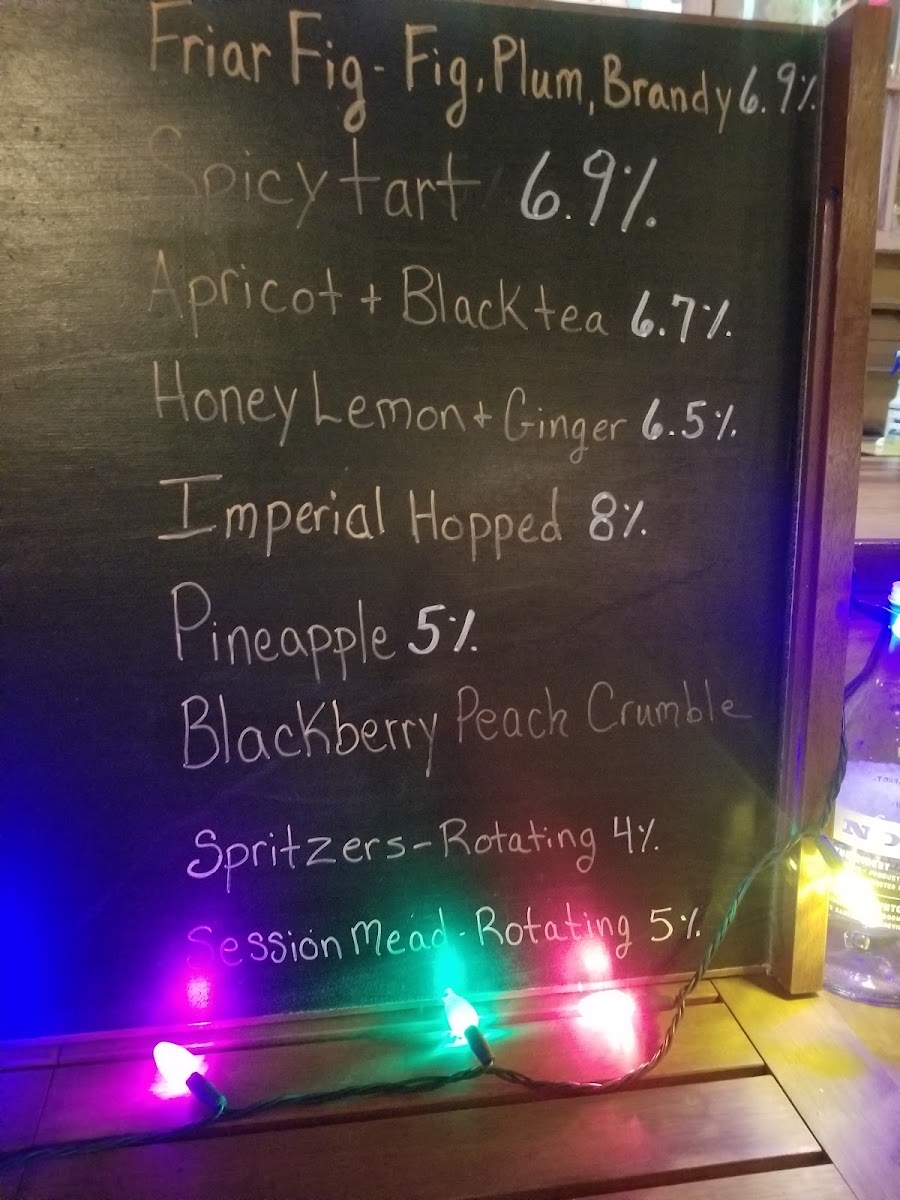 Friar Fig - Fig, Plum, Brandy 6.9%
Spicy tart 6.9%
Apricot + Black tea 6.7%
Honey Lemon + Ginger 6.5%
Imperial Hopped 8%
Pineapple 5%
Blackberry Peach Crumble
Spritzers - Rotating 4%
Session Mead - Rotating 5%